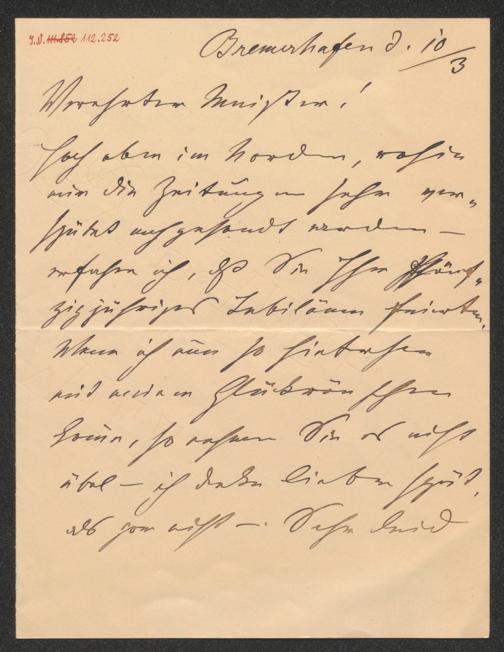 I.N. 111.852 112.252
Bremerhafen d. 10/3
Verehrter Meister!
Hoch oben im Norden, wohin
mir die Zeitungen sehr ver-
spätet nachgesandt werden –
erfahre ich, daß Sie Ihr fünf-
zigjähriges Jubiläum feierten.
Wenn ich nun so hinterher
mit meinen Glückwünschen
komme, so nehmen Sie es nicht
übel – ich denke lieber spät,
als gar nicht –. Sehr leid